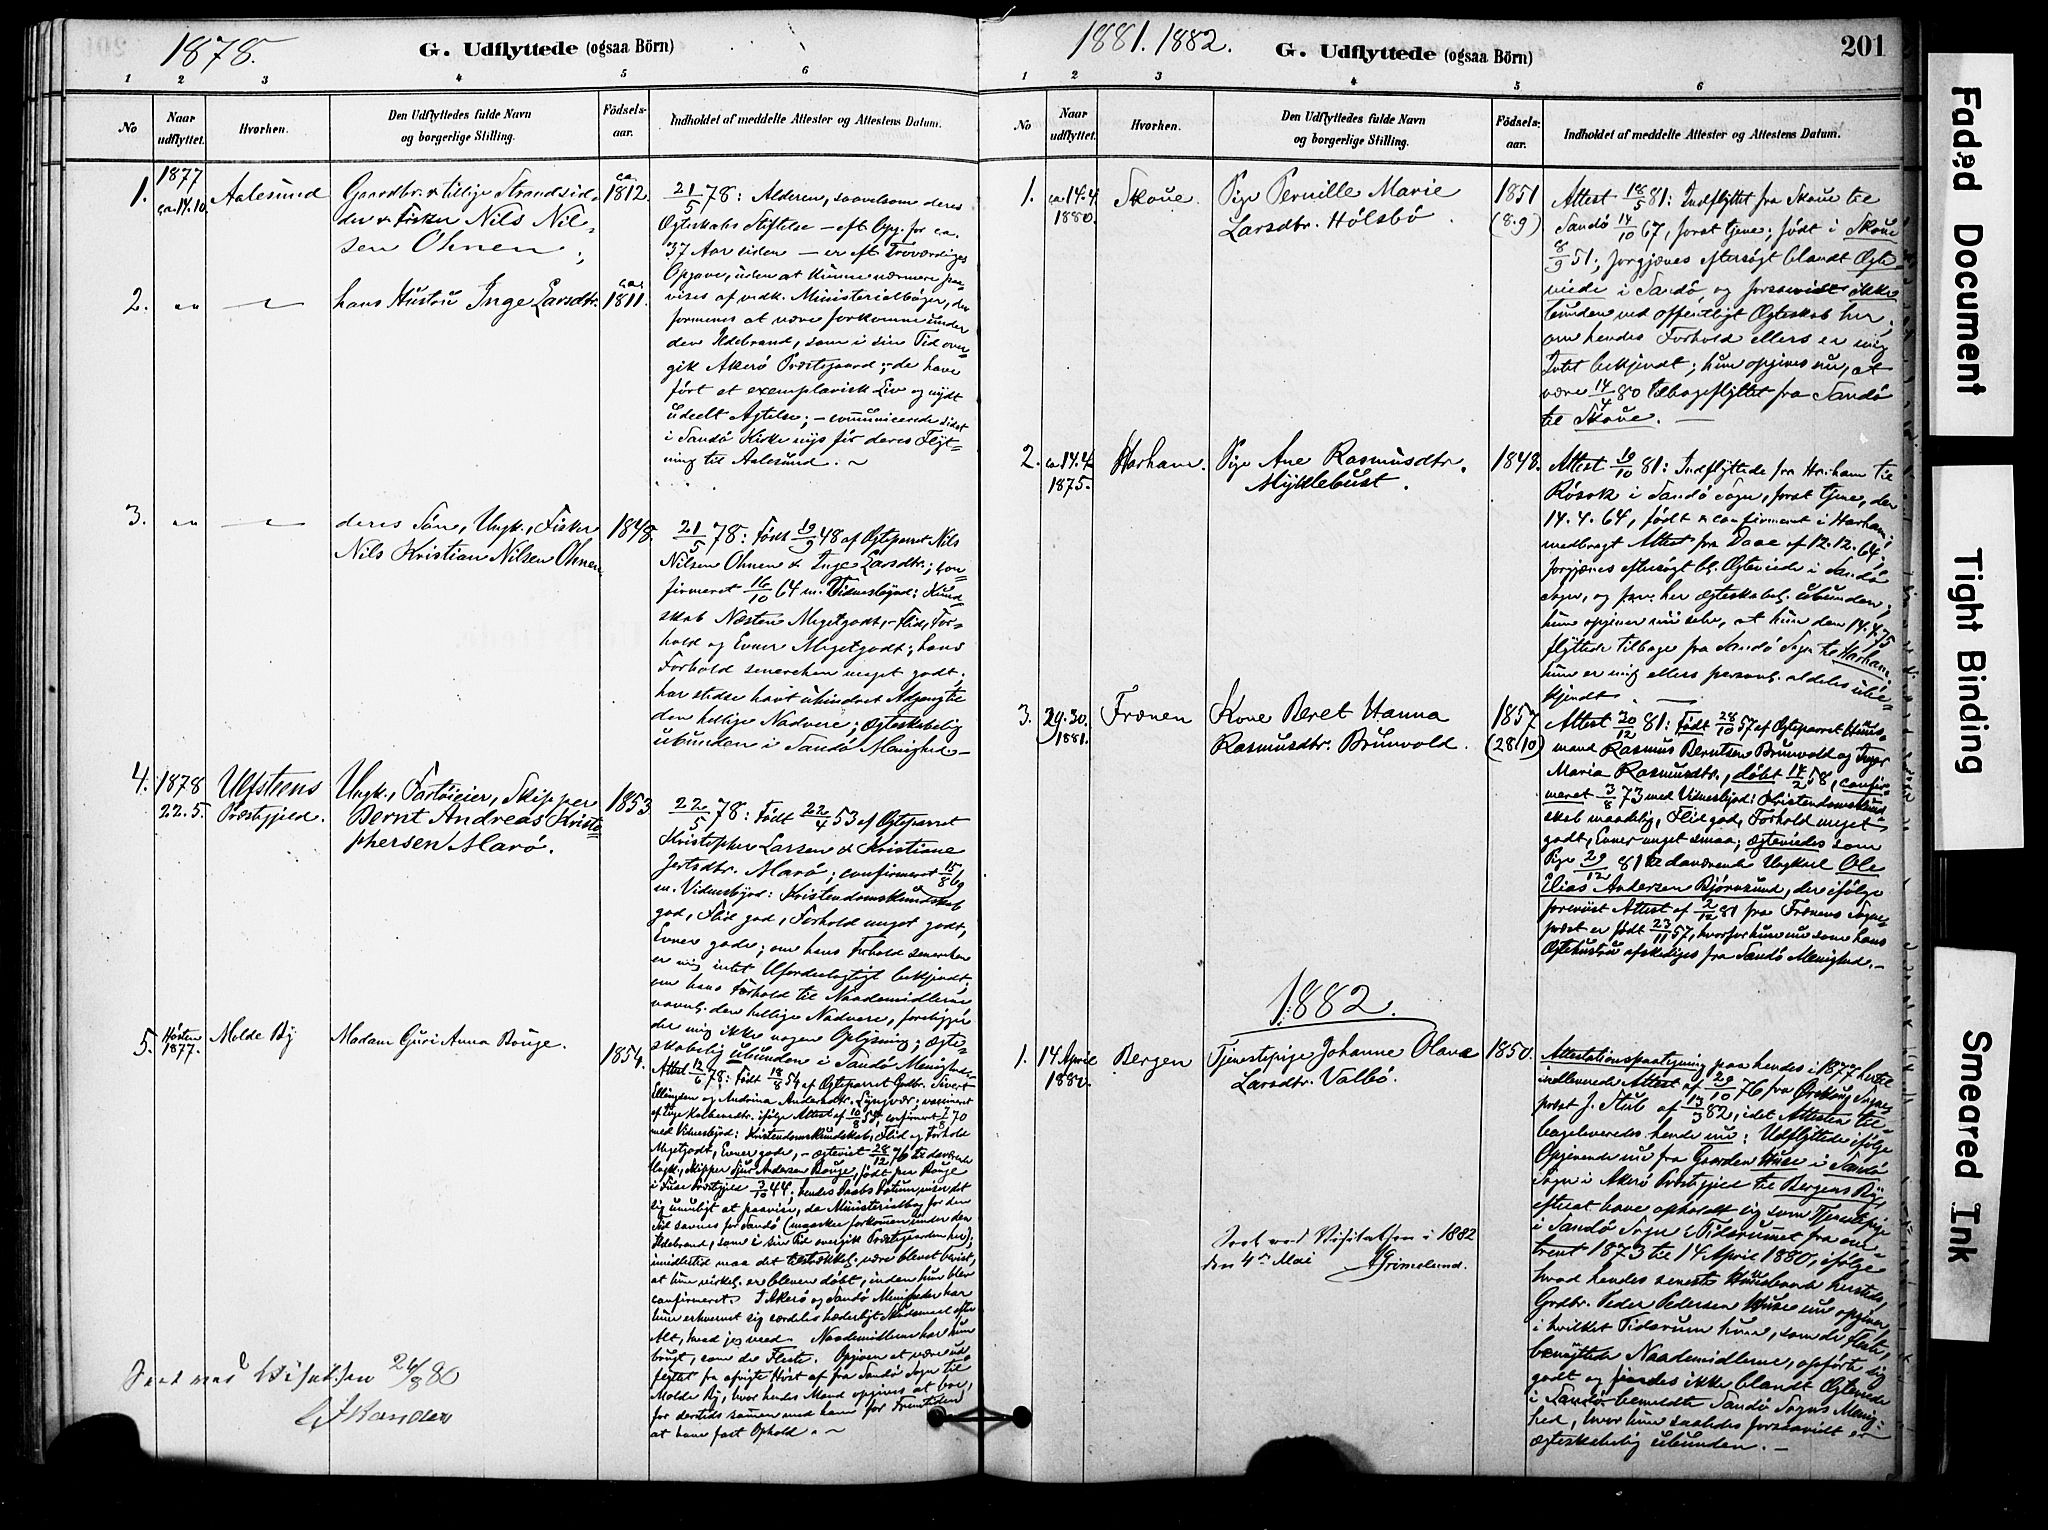 1878.
G. Udflyttede (ogsaa Börn)
1 2 3 4 5 6
No
Naar udflyttet.
Hvorhen.
Den Udflyttedes fulde Navn og borgerlige Stilling.
Födselsaar.
Indholdet af meddelte Attester og Attestens Datum.
1.
1877
ca. 14.10.
Aalesund
Gaardbr. & tillige Strandsid-
der & Fisker Nils Nil-
sen Ohnen;
ca
1812.
21/5 78: Alderen, saavelsom deres
Ægteskabs Stiftelse – eft. Opg. for ca.
37 Aar siden – er eft. Troværdiges
Opgave, uden at kunne nærmere paa-
vises af vedk. Ministerialbøger, der
formenes at være forkomne under
den Ildebrand, som i sin Tid over-
gik Akerø Præstegaard; de have
ført et exemplarisk Liv og nydt
udeelt Agtelse; – communicerede sidst
i Sandø Kirke nys før deres Flyt-
ning til Aalesund. –
2.
hans Hustru Inge Larsdtr.
ca.
1811.
3.
deres Søn, Ungk., Fisker
Nils Kristian Nilsen Ohnen
1848.
21/5 78: Født 19/9 48 af Ægteparret Nils
Nilsen Ohnen & Inge Larsdtr.; con-
firmeret 16/10 64 m. Vidnesbyrd: Kund-
skab Næsten Megetgodt, – Flid, For-
hold og Evner Megetgodt; hans
Forhold senerehen meget godt;
har stedse havt uhindret Adgang til
den hellige Nadvere; ægteskabelig
ubunden i Sandø Menighed –
4.
1878
22.5.
Ulfsteens
Præstegjeld.
Ungk., Fartøieier, Skipper
Bernt Andreas Kristo-
phersen Marø.
1853.
22/5 78: Født 22/4 53 af Ægteparret
Kristopher Larsen & Kristiane
Jertsdtr. Marø; confirmeret 15/8 69
m. Vidnesbyrd: Kristendomskundskab
god, Flid god, Forhold meget godt,
Evner gode; om hans Forhold senerehen
er mig intet Ufordelagtigt bekjendt;
om hans Forhold til Naademidlerne
navnl. den hellige Nadvere, foreligger
der mig ikke nogen Oplysning; ægte-
skabelig ubunden i Sandø Menighed.
5.
Høsten
1877.
Molde By
Madam Guri Anna Bouge.
1854.
Attest 12/6 78: Født 18/8 54 af Ægteparret Gdbr. Sivert
Ellingsen og Andrina Andersdtr. Lyngvær; vaccineret
confirmeret 7/8 70
med Vidnesbyrd: Kristendomskundskab, Flid og Forhold
Megetgodt, Evner gode, – ægteviet 28/12 76 til daværende
Ungk., Skipper Sjur Andersen Bouge, født paa Bouge
i Fuse Præstegjeld 3/10 44; hendes Daabs Datum viser det
sig umuligt at paavise, da Ministerialbog for den
Tid savnes for Sandø (maaskee forkommen under den
Ildebrand, som i sin Tid overgik Præstegaarden her);
imidlertid maa det tilstrækkel. være blevet bevist,
at hun virkel. er bleven døbt, inden hun blev
confirmeret. I Akerø og Sandø Menigheder har
hun erhvervet sig særdeles hæderligt Skudsmaal efter
Alt, hvad jeg veed. Naademidlerne har hun
brugt, som de Fleste. Opgives at være ud-
flyttet fra afvigte Høst af fra Sandø Sogn til
Molde By, hvor hendes Mand opgives at boe,
for dersteds sammen med ham for Fremtiden
at have fast Ophold. –
Seet ved Visitatsen 24/8 80
1881. 1882.
G. Udflyttede (ogsaa Börn)
201
1 2 3 4 5 6
No
Naar udflyttet.
Hvorhen.
Den Udflyttedes fulde Navn og borgerlige Stilling.
Födselsaar.
Indholdet af meddelte Attester og Attestens Datum.
1.
ca. 14.4
1880.
Skoue.
Pige Pernille Marie
Larsdtr. Hølsbø.
1851
(8.9)
Attest 18/5 81: Indflyttet fra Skoue til
Sandø 14/10 67, forat tjene; født i Skoue
8/9 51; forgjæves eftersøgt blandt Ægte-
viede i Sandø, og forsaavidt ikke
bunden ved offentligt Ægteskab her;
om hendes Forhold ellers er mig
Intet bekjendt; hun opgives nu, at
være 14/4 80 tilbageflyttet fra Sandø
til Skoue. –
2.
ca. 14.4
1875.
Harham.
Pige Ane Rasmusdtr.
Myklebust.
1848.
Attest 19/10 81: Indflyttede fra Harham til
Røsok i Sandø Sogn, forat tjene, den
14.4.64, født & confirmeret i Harham;
medbragt Attest fra Daae af 12.12.64;
forgjæves eftersøgt bl. Ægteviede i Sandø
Sogn, og forv. her ægteskabel. ubunden;
hun opgiver nu selv, at hun den 14.4.75
flyttede tilbage fra Sandø Sogn til Harham;
hun er mig ellers personl. aldeles ube-
kjendt
3.
29.30.
1881.
Frænen
Kone Beret Hanna
Rasmusdtr. Brunvold.
1857.
(28/10)
Attest 30/12 81: Født 28/10 57 af Ægteparret Huus-
mand Rasmus Berntsen Brunvold og Inger
Maria Rasmusdtr., døbt 14/2 58, confir-
meret 3/8 73 med Vidnesbyrd: Kristendomskund-
skab maadelig, Flid god, Forhold meget
godt, Evner meget smaa; ægteviedes som
Pige 29/12 81 til daværende Ungkarl Ole
Elias Andersen Bjørnsund, der ifølge
forevist Attest af 2/12 81 fra Frænens Sogne-
præst er født 23/11 57, hvorfor hun nu som hans
Ægtehustru afskediges fra Sandø Menighed. –
1882.
1.
14 April
1880.
Bergen
Tjenestepige Johanne Olava
Larsdtr. Valbø.
1850.
Attestationspaategning paa hendes i 1877 hertil
indleverede Attest af 29/10 76 fra Ørskoug Sogne-
præst J. Stub af 13/3 82, idet Attesten til-
bageleveredes hende nu: Udflyttede ifølge
Opgivende nu fra Gaarden Huse i Sandø
Sogn i Akerø Præstegjeld til Bergens By,
efterat have opholdt sig som Tjenestepige
i Sandø Sogn i Tidsrummet fra om-
trent 1873 til 14 April 1880, ifølge
hvad hendes seneste Huusbonde hersteds,
Grdbr. Peder Pedersen Huse nu opgiver,
i hvilket Tidsrum hun, som de fleste,
benyttede Naademidlerne, opførte sig
godt og fandes ikke blandt Ægteviede
i Sandø bemeldte Sandø Sogns Menig-
hed, hvor hun saaledes forsaavidt er
ægteskabelig ubunden. –
Seet ved Visitatsen i 1882
den 4de Mai Grimelund.
Faded Document
Tight Binding
Smeared Ink